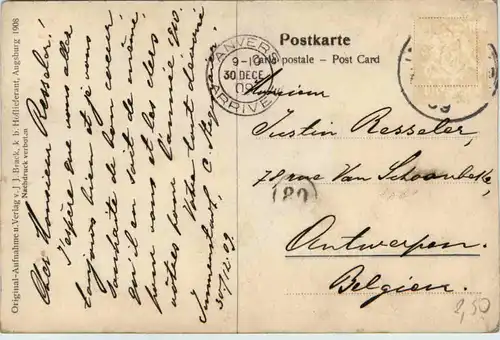 Original-Aufnahme u. Verlag v. J. J. Brack, k. b. Hoflieferant, Augsburg 1908
Nachdruck verboten
Cher Monsieur Resseler!
J'espère que vous allez
toujours bien et je vous
souhaite de bon coeur
qu'il en soit de même
pour vous et les chers
vôtres pour l'année 1910.
Votre tout dévoué
C.
Immenstadt,
30/12.09.
Postkarte
Carte postale — Post Card
ANVERS
9-10
30 DECE
09
ARRIVEE
09
Monsieur
Justin Resseler,
78, rue Van Schoonbeke,
(80)
Antwerpen.
Belgien.
2,50